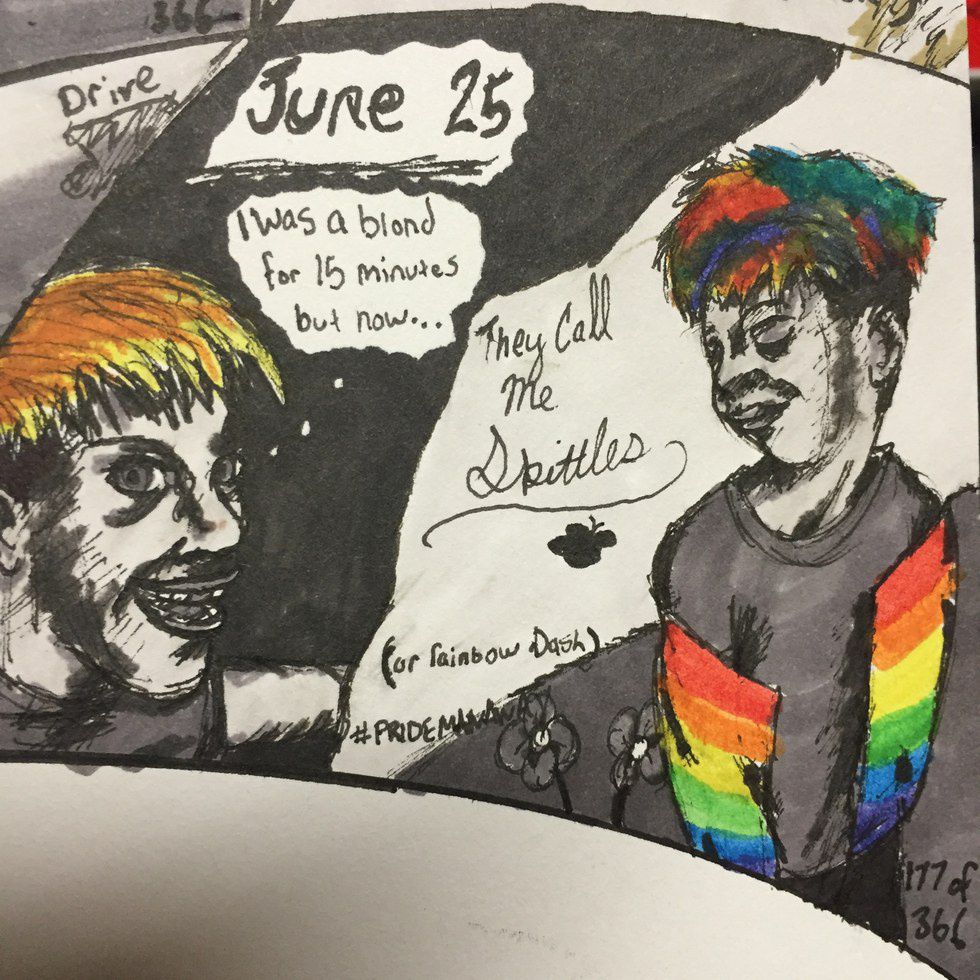 366
Drive
June 25
I was a blond
for 15 minutes
but now...
They Call
Me
Skittles
(or rainbow Dash)
177 of
366